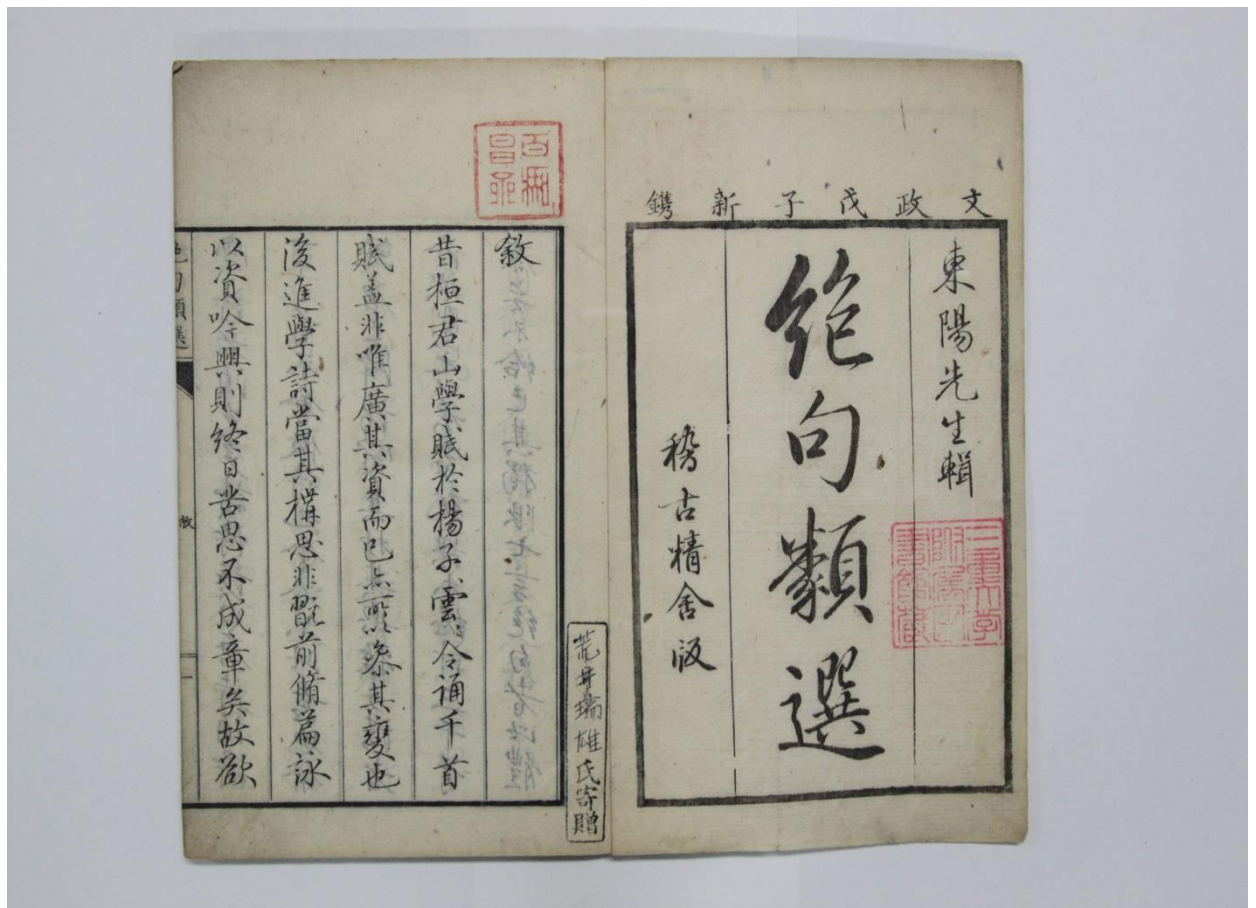 文政戊子新鐫
東陽先生輯
絶句類選
稽古精舎版
三重大学
附属図
書館蔵
荒井瑞雄氏寄贈
敘
昔桓君山學賦於楊子雲令誦千首
賦盖非唯廣其資而已亦㸃叅其變也
後進學詩當其構思非翫前脩篇詠
以資吟興則終日苦思不成章矣故欲
絶句類選
敘